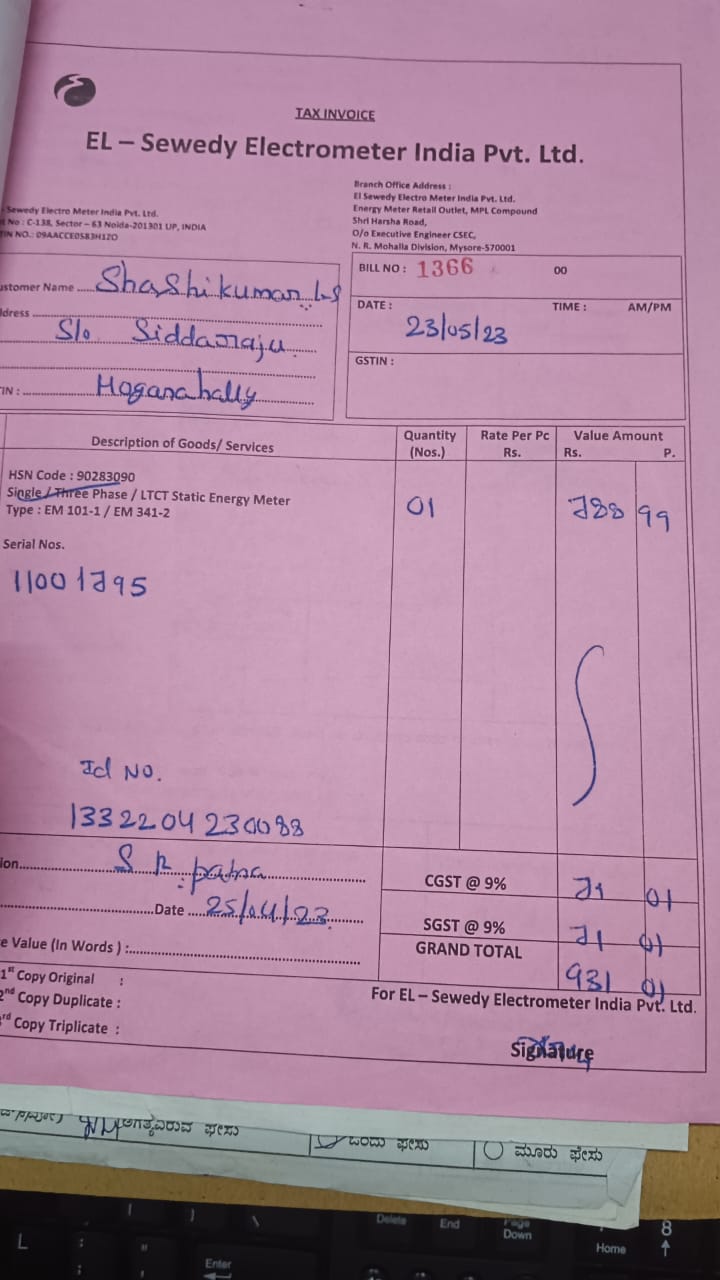 TAX INVOICE
EL – Sewedy Electrometer India Pvt. Ltd.
Sewedy Electro Meter India Pvt. Ltd.
No : C-138, Sector – 63 Noida-201301 UP, INDIA
TIN NO.: 09AACCE0583H1ZO
Branch Office Address :
El Sewedy Electro Meter India Pvt. Ltd.
Energy Meter Retail Outlet, MPL Compound
Shri Harsha Road,
O/o Executive Engineer CSEC,
N. R. Mohalla Division, Mysore-570001
ustomer Name Shashikumar
ddress
S/o Siddaraju
IN : Hoganahally
BILL NO : 1366 00
DATE : TIME : AM/PM
23/05/23
GSTIN :
Description of Goods/ Services Quantity (Nos.) Rate Per Pc Rs. Value Amount Rs. P.
HSN Code : 90283090
Single / Three Phase / LTCT Static Energy Meter 01 788 99
Type : EM 101-1 / EM 341-2
Serial Nos.
11001795
Id No.
1332204230088
ion
CGST @ 9% 71 01
Date 25/04/23
SGST @ 9% 71 01
e Value (In Words ) :
GRAND TOTAL 931 01
1st Copy Original :
2nd Copy Duplicate :
rd Copy Triplicate :
For EL – Sewedy Electrometer India Pvt. Ltd.
Signature
ಫೇಸು
ಒಂದು ಫೇಸು
ಮೂರು ಫೇಸು
L
Enter
Delete
End
Page Down
Home
8